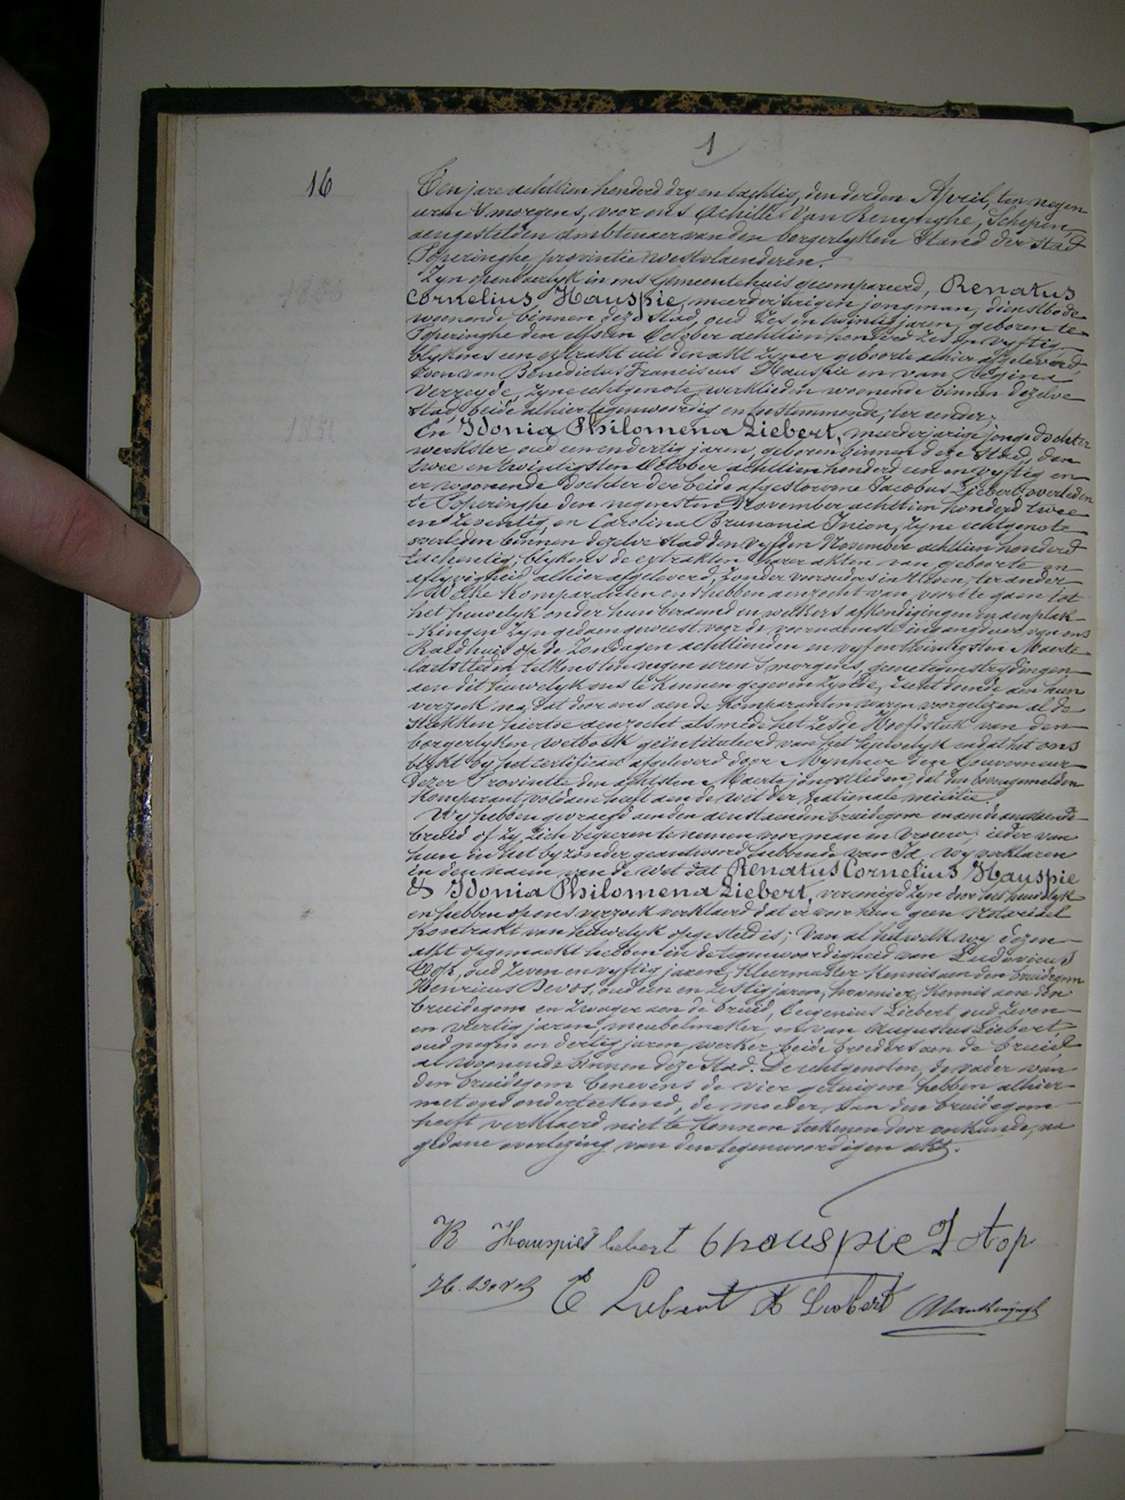 1
16
Ten jare achttien honderd dry en tachtig, den derden April, ten negen
uren 's morgens, voor ons Achille Van Renynghe, Schepen,
aengestelden Ambtenaer van den borgerlyken Stand der Stad
Poperinghe, provintie Westvlaenderen.
Zyn openbaerlyk in ons Gemeentehuis gecompareerd, Renatus
Cornelius Hauspie, meerderjarigen jongman, dienstbode
woonende binnen deze Stad, oud zes en twintig jaren, geboren te
Poperinghe den October achttien honderd zes en vyftig
blykens een extrakt uit den akt zyner geboorte alhier afgeleverd,
Zoon van Benedictus Franciscus Hauspie en van Regina
Verreyde, zyne echtgenote, werklieden woonende binnen dezelve
Stad, beide alhier tegenwoordig en toestemmende, ter eender;
En Idonia Philomena Liebert, meerderjarige jongedochter
werkster oud een en dertig jaren, geboren binnen deze Stad, den
twee en twintigsten October achttien honderd een en vyftig en
er woonende dochter der beide afgestorvene Jacobus Liebert, overleden
te Poperinghe den negensten November achttien honderd twee
en zeventig, en Carolina Inion, zyne echtgenote
overleden binnen dezelve Stad den vyfden November achttien honderd
blykens de extrakten harer akten van geboorte en
aflyvigheid, alhier afgeleverd, zonder voorouders in 't leven, ter ander
Welke Komparanten ons hebben aenzocht van voort te gaen tot
het huwelyk onder hun beraemd en welkers afkondigingen en aenplak-
kingen zyn gedaen geweest voor de voornaemste ingangdeur van ons
Raedhuis op de Zondagen achttienden en vyf en twintigsten Maerte
laetstleden telkens ten negen uren 's morgens, geene tegenstrydingen
aen dit huwelyk ons te kennen gegeven zynde, recht doende aen hun
verzoek na dat door ons aen de Komparanten waren voorgelezen al de
stukken hiertoe aenzocht alsmede het zesde Hoofdstuk van den
borgerlyken wetboek geintituleerd van het huwelyk en dat het ons
blykt by het certificaet afgeleverd door Mynheer den Gouverneur
dezer Provintie den achtsten Maerte jongstleden, dat den bovengemelden
Komparant voldaen heeft aen de wet der nationale militie.
Wy hebben gevraegd aen den aenstaenden bruidegom en aen de aenstaende
bruid of zy zich begeeren te nemen voor man en vrouw; ieder van
hun in het byzonder geantwoord hebbende van Ja, wy verklaren
in den naem van de wet dat Renatus Cornelius Hauspie
& Idonia Philomena Liebert, vereenigd zyn door het huwelyk
en hebben op ons verzoek verklaerd dat er voor hun geen notarieel
Kontrakt van huwelyk opgesteld is; Van al hetwelk wy dezen
akt opgemaekt hebben in de tegenwoordigheid van Ludovicus
oud zeven en vyftig jaren, Kleermaeker kennis aen den bruidegom
Henricus Devos, oud een en zestig jaren, hovenier, kennis aen den
bruidegom en zwager aen de bruid, Eugenius Liebert, oud zeven
en veertig jaren, meubelmaker, en van Augustus Liebert,
oud negen en dertig jaren, werker, beide broeders aen de bruid
al woonende binnen deze Stad. De echtgenoten, de vader van
den bruidegom benevens de vier getuigen hebben alhier
met ons onderteekend, de moeder van den bruidegom
heeft verklaerd niet te konnen teekenen door onkunde, na
gedane voorlezing van den tegenwoordigen akt.
R Hauspie liebert b hauspie
H. Devos E Liebert A Liebert